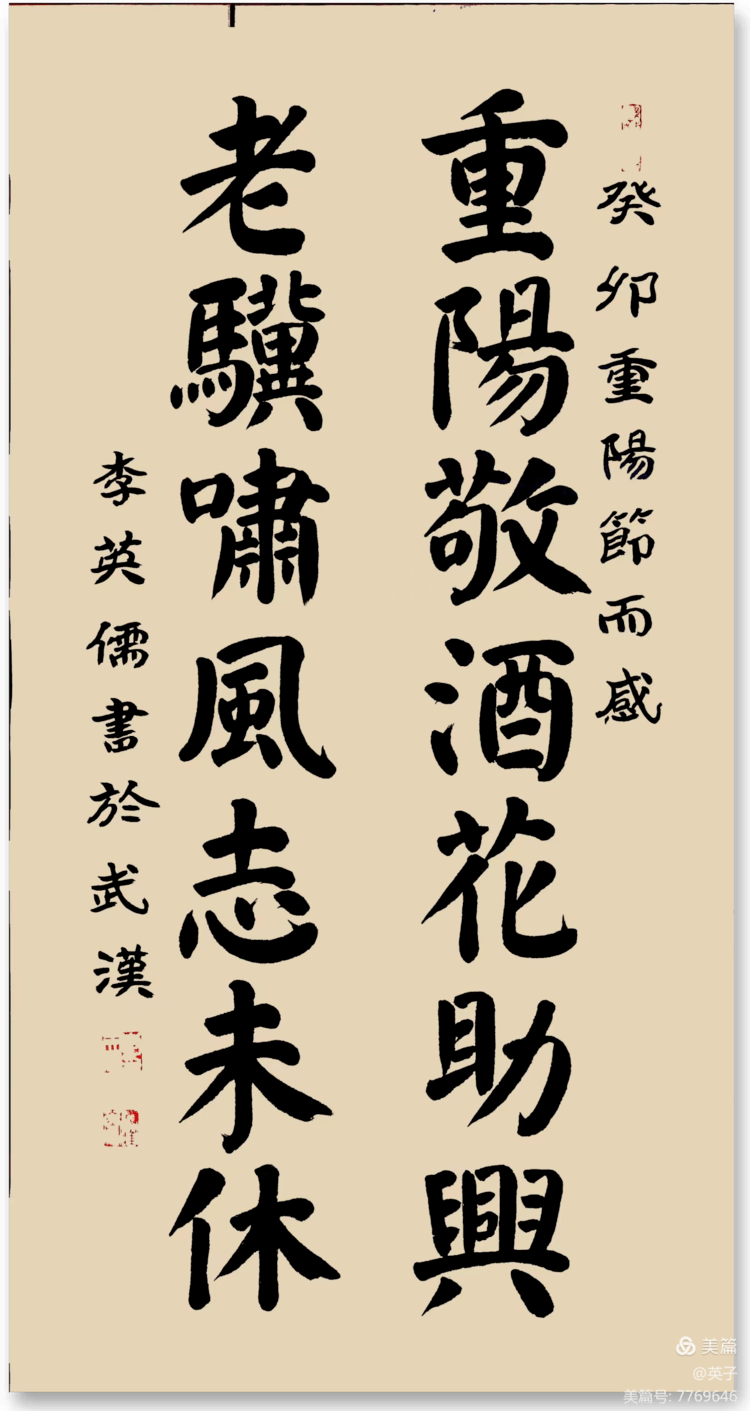 癸卯重陽節而感
重陽敬酒花助興
老驥嘯風志未休
李英儒書於武漢
美篇
@英子
美篇号: 7769646